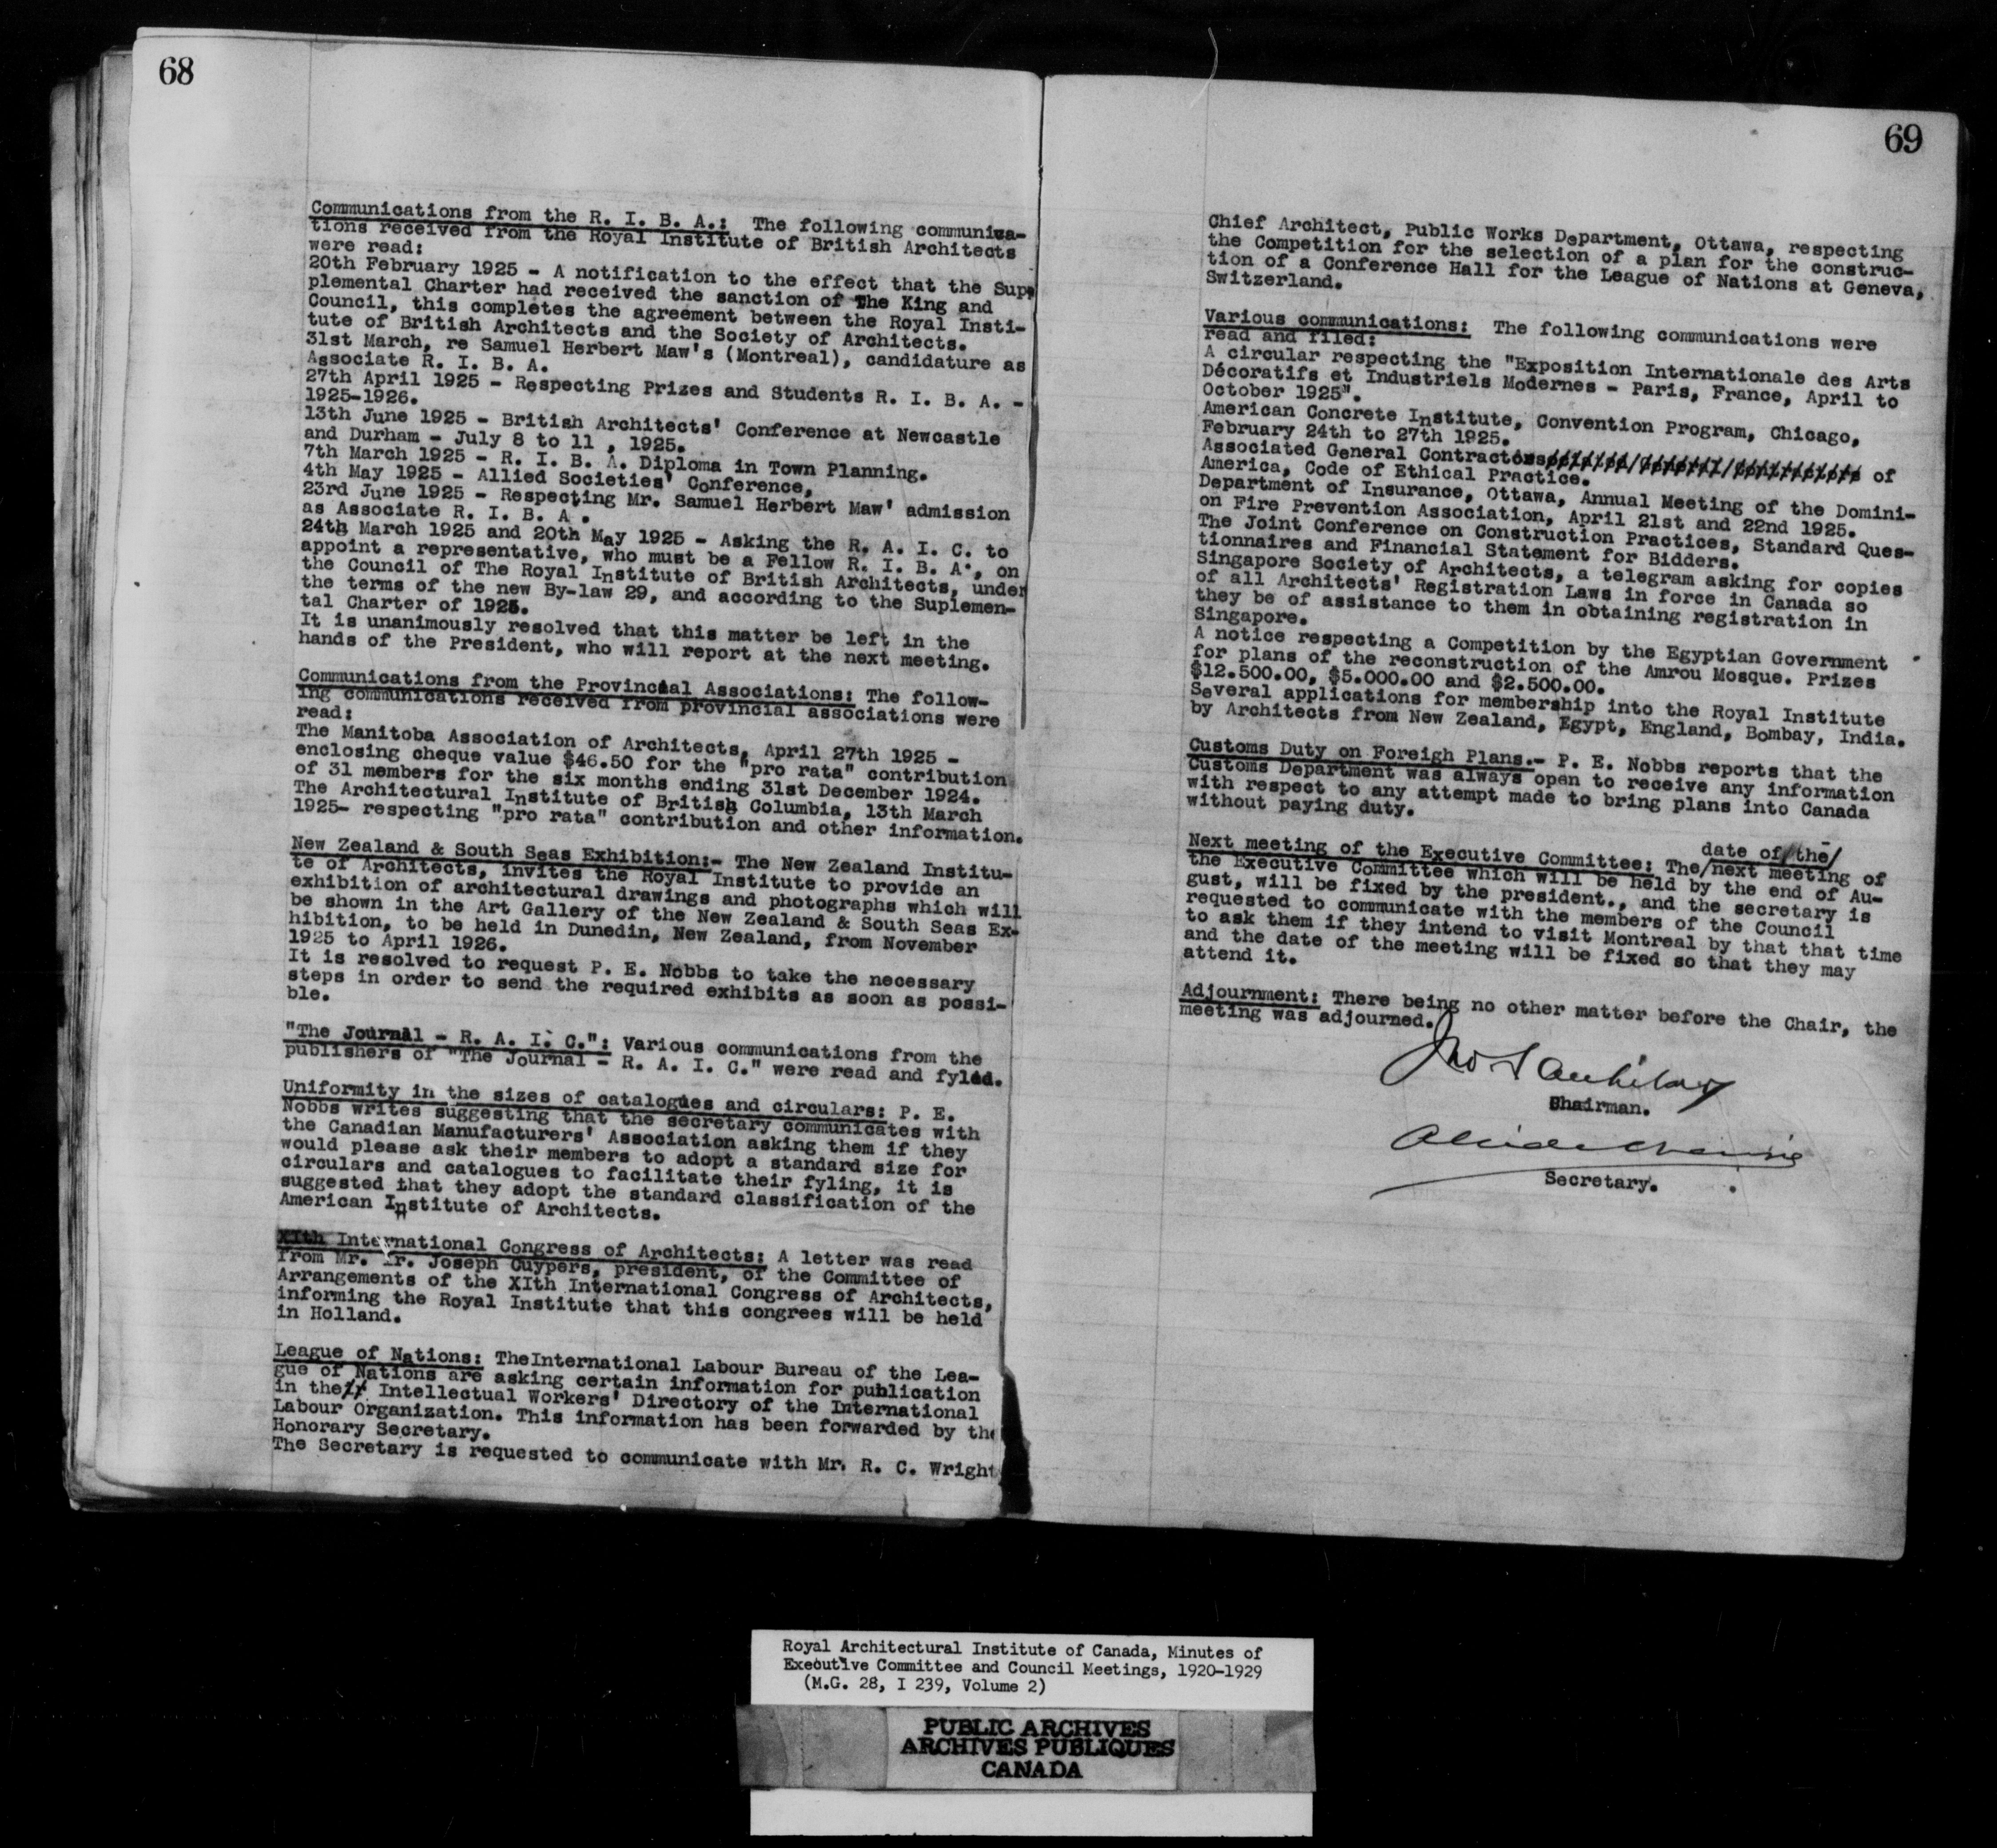 68
Communications from the R. I. B. A.: The following communica-
tions received from the Royal Institute of British Architects
were read:
20th February 1925 - A notification to the effect that the Sup-
plemental Charter had received the sanction of The King and
Council, this completes the agreement between the Royal Insti-
tute of British Architects and the Society of Architects.
31st March, re Samuel Herbert Maw's (Montreal), candidature as
Associate R. I. B. A.
27th April 1925 - Respecting Prizes and Students R. I. B. A. -
1925-1926.
13th June 1925 - British Architects' Conference at Newcastle
and Durham - July 8 to 11 , 1925.
7th March 1925 - R. I. B. A. Diploma in Town Planning.
4th May 1925 - Allied Societies' Conference,
23rd June 1925 - Respecting Mr. Samuel Herbert Maw' admission
as Associate R. I. B. A.
24th March 1925 and 20th May 1925 - Asking the R. A. I. C. to
appoint a representative, who must be a Fellow R. I. B. A., on
the Council of The Royal Institute of British Architects, under
the terms of the new By-law 29, and according to the Suplemen-
tal Charter of 1925.
It is unanimously resolved that this matter be left in the
hands of the President, who will report at the next meeting.
Communications from the Provincial Associations: The follow-
ing communications received from provincial associations were
read:
The Manitoba Association of Architects, April 27th 1925 -
enclosing cheque value $46.50 for the "pro rata" contribution
of 31 members for the six months ending 31st December 1924.
The Architectural Institute of British Columbia, 13th March
1925- respecting "pro rata" contribution and other information.
New Zealand & South Seas Exhibition:- The New Zealand Institu-
te of Architects, invites the Royal Institute to provide an
exhibition of architectural drawings and photographs which will
be shown in the Art Gallery of the New Zealand & South Seas Ex-
hibition, to be held in Dunedin, New Zealand, from November
1925 to April 1926.
It is resolved to request P. E. Nobbs to take the necessary
steps in order to send the required exhibits as soon as possi-
ble.
"The Journal - R. A. I. C.": Various communications from the
publishers of "The Journal - R. A. I. C." were read and fyled.
Uniformity in the sizes of catalogues and circulars: P. E.
Nobbs writes suggesting that the secretary communicates with
the Canadian Manufacturers' Association asking them if they
would please ask their members to adopt a standard size for
circulars and catalogues to facilitate their fyling, it is
suggested that they adopt the standard classification of the
American Institute of Architects.
XIth International Congress of Architects: A letter was read
from Mr. Ir. Joseph Cuypers, president, of the Committee of
Arrangements of the XIth International Congress of Architects,
informing the Royal Institute that this congrees will be held
in Holland.
League of Nations: TheInternational Labour Bureau of the Lea-
gue of Nations are asking certain information for publication
in the Intellectual Workers' Directory of the International
Labour Organization. This information has been forwarded by the
Honorary Secretary.
The Secretary is requested to communicate with Mr. R. C. Wright
69
Chief Architect, Public Works Department, Ottawa, respecting
the Competition for the selection of a plan for the construc-
tion of a Conference Hall for the League of Nations at Geneva,
Switzerland.
Various communications: The following communications were
read and filed:
A circular respecting the "Exposition Internationale des Arts
Décoratifs et Industriels Modernes - Paris, France, April to
October 1925".
American Concrete Institute, Convention Program, Chicago,
February 24th to 27th 1925.
Associated General Contractors of
America, Code of Ethical Practice.
Department of Insurance, Ottawa, Annual Meeting of the Domini-
on Fire Prevention Association, April 21st and 22nd 1925.
The Joint Conference on Construction Practices, Standard Ques-
tionnaires and Financial Statement for Bidders.
Singapore Society of Architects, a telegram asking for copies
of all Architects' Registration Laws in force in Canada so
they be of assistance to them in obtaining registration in
Singapore.
A notice respecting a Competition by the Egyptian Government
for plans of the reconstruction of the Amrou Mosque. Prizes
$12.500.00, $5.000.00 and $2.500.00.
Several applications for membership into the Royal Institute
by Architects from New Zealand, Egypt, England, Bombay, India.
Customs Duty on Foreigh Plans.- P. E. Nobbs reports that the
Customs Department was always open to receive any information
with respect to any attempt made to bring plans into Canada
without paying duty.
date of/the/
Next meeting of the Executive Committee: The/next meeting of
the Executive Committee which will be held by the end of Au-
gust, will be fixed by the president., and the secretary is
requested to communicate with the members of the Council
to ask them if they intend to visit Montreal by that that time
and the date of the meeting will be fixed so that they may
attend it.
Adjournment: There being no other matter before the Chair, the
meeting was adjourned.
Chairman.
Secretary.
Royal Architectural Institute of Canada, Minutes of
Executive Committee and Council Meetings, 1920-1929
(M.G. 28, I 239, Volume 2)
PUBLIC ARCHIVES
ARCHIVES PUBLIQUES
CANADA